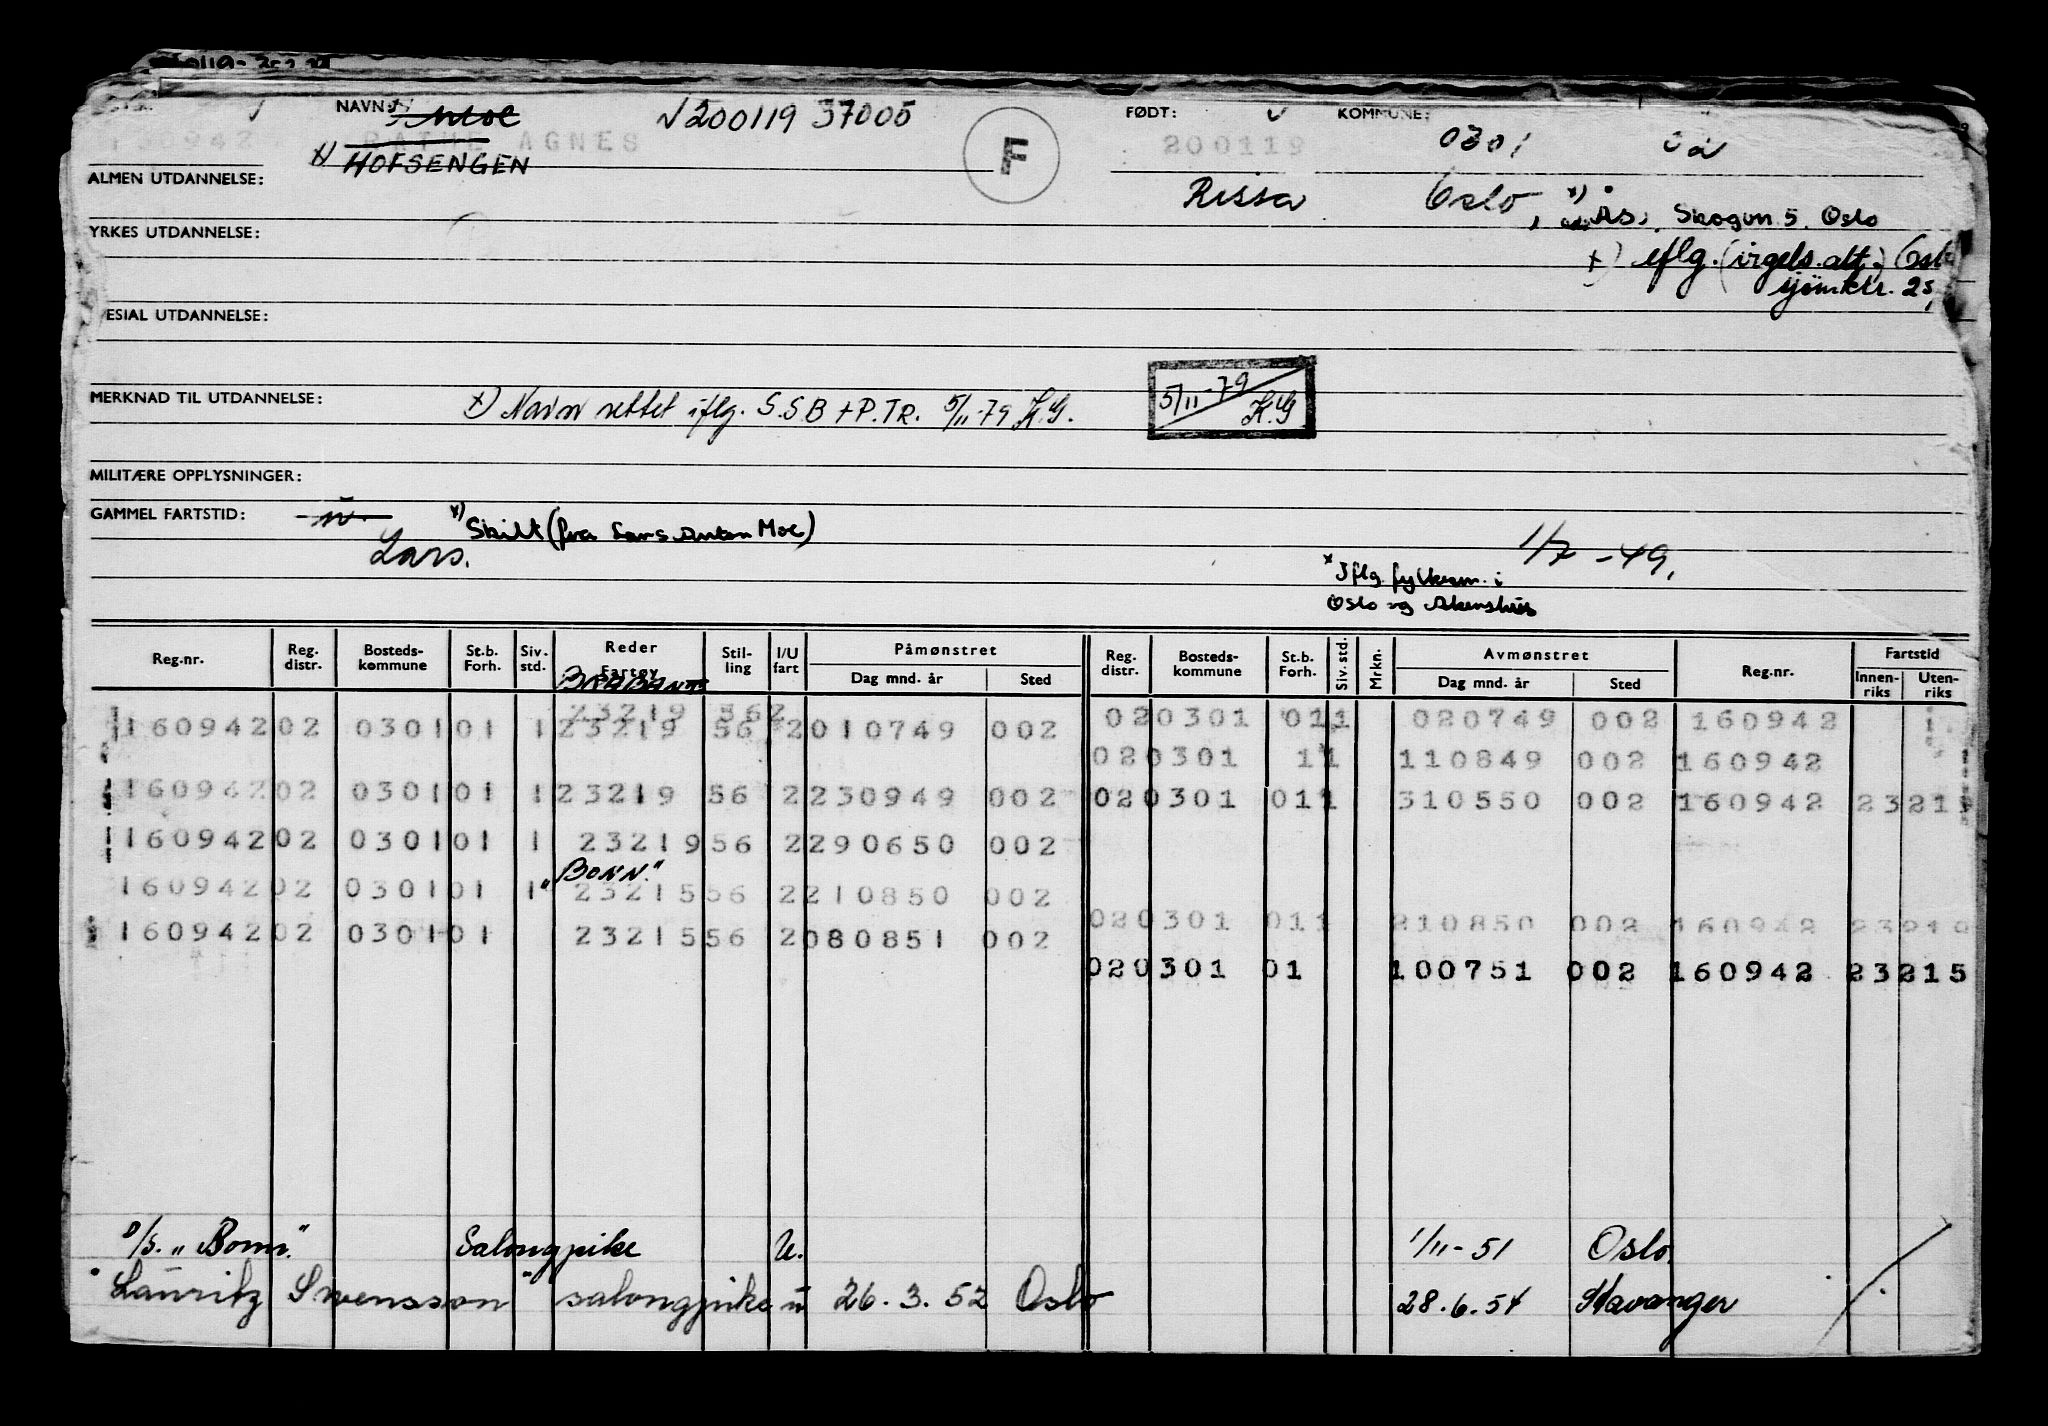 NAVN: Moe √200119 37005 FØDT: KOMMUNE:
AGNES 200119 0301
x) HOFSENGEN F
ALMEN UTDANNELSE: Rissa Oslo, x) Ås, Skogvn. 5, Oslo
YRKES UTDANNELSE:
x) iflg.
ESIAL UTDANNELSE:
MERKNAD TIL UTDANNELSE: x) Navn rettet iflg. S.S.B + P.TR. 5/11-79 K.G. 5/11-79 K.G
MILITÆRE OPPLYSNINGER:
GAMMEL FARTSTID: x) Skilt (fra Lars Anton Moe) 1/7-49.
Lars.
x Iflg. fylkesm. i
Oslo og Akershus
Reg.nr. Reg. distr. Bosteds-kommune St.b. Forh. Siv. std. Reder Fartøy Stil-ling I/U fart Påmønstret Dag mnd. år Sted Reg. distr. Bosteds-kommune St.b. Forh. Siv. std. Mrkn. Avmønstret Dag mnd. år Sted Reg.nr. Fartstid Innen-riks Uten-riks
BRABANT
23219 562
160942 02 0301 01 1 23219 56 2 010749 002 02 0301 01 1 020749 002 160942
02 0301 1 1 110849 002 160942
160942 02 0301 01 1 23219 56 2 230949 002 02 0301 01 1 310550 002 160942 2321
160942 02 0301 01 1 23219 56 2 290650 002
"BONN."
160942 02 0301 01 1 23215 56 2 210850 002
02 0301 01 1 210850 002 160942 23219
160942 02 0301 01 23215 56 2 080851 002
02 0301 01 100751 002 160942 23215
D/S. "Bonn." Salongpike U. 1/11-51 Oslo.
"Lauritz Swensson" salongpike u 26.3.52 Oslo 28.6.54 Stavanger